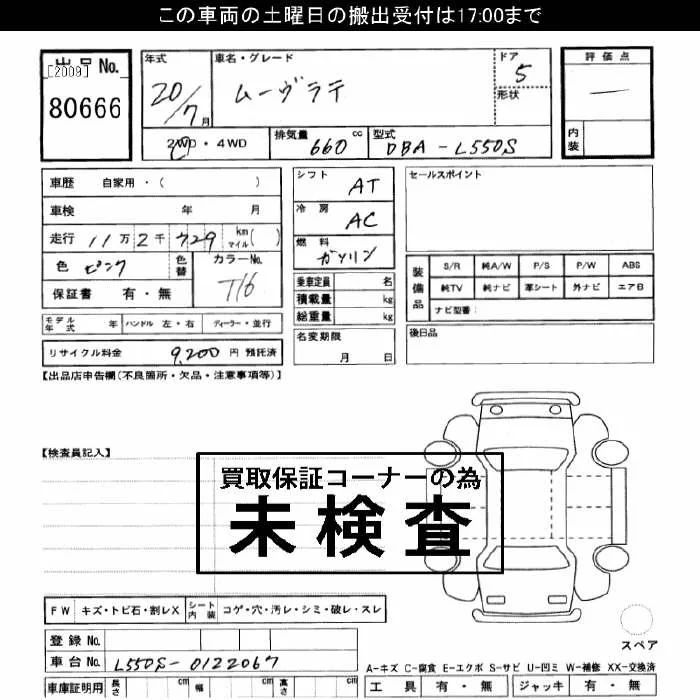 この車両の土曜日の搬出受付は17:00まで
出品No. [2009]
80666
年式 20/7月
車名・グレード ムーヴラテ
ドア 5
形状
評価点 —
内装
2WD・4WD
排気量 660 cc
型式 DBA-L550S
車歴 自家用・( )
車検 年 月
走行 11万2千729 km マイル( )
色 ピンク 色替 カラーNo. T16
保証書 有・無
シフト AT
冷房 AC
燃料 ガソリン
乗車定員 名
積載量 kg
総重量 kg
名変期限 月 日
セールスポイント
装備品
S/R 純A/W P/S P/W ABS
純TV 純ナビ 革シート 外ナビ エアB
ナビ型番:
後日品
モデル年式 年 ハンドル 左・右 ディーラー・並行
リサイクル料金 9,200 円 預託済
【出品店申告欄(不良箇所・欠品・注意事項等)】
【検査員記入】
買取保証コーナーの為
未検査
FW キズ・トビ石・割レX シート内装 コゲ・穴・汚レ・シミ・破レ・スレ
登録No.
車台No. L550S-0122067
車庫証明用 長さ cm 幅 cm 高さ cm
スペア
A-キズ C-腐食 E-エクボ S-サビ U-凹ミ W-補修 XX-交換済
工具 有・無 ジャッキ 有・無